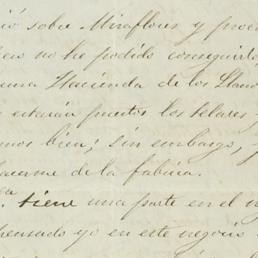 ió sobre Miraflores y
pero no he podido conseguirlo,
Hacienda de los Llano
estarán puestos los telares y
mos bien; sin embargo,
hacerme de la fabrica.
tiene una parte en el
pensado yo en este negocio